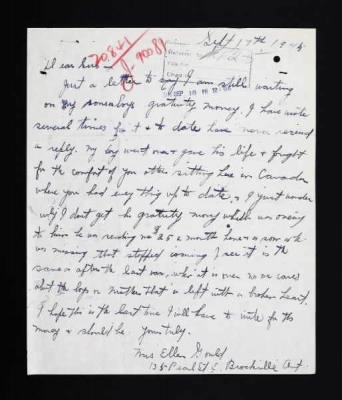 Sept 17th 1945
Dear Sirs
Just a letter to say I am still waiting
on my sons boys gratuity money. I have wrote
several times for it & to date have never received
a reply. my boy went over & gave his life & fought
for the comfort of you sitting here in Canada
where you had every thing up to date, & I just wonder
why I dont get his gratuity money which was owing
to him he was sending me $25 a month home & as soon as he
was missing that stopped coming I see it is the
same as after the last war, when it is over no one cares
about the boys or mothers that is left with a broken heart.
I hope this is the last time I will have to write for this
money & should be yours truly.
Mrs Ellen Gould
135 Pearl St E, Brockville Ont.